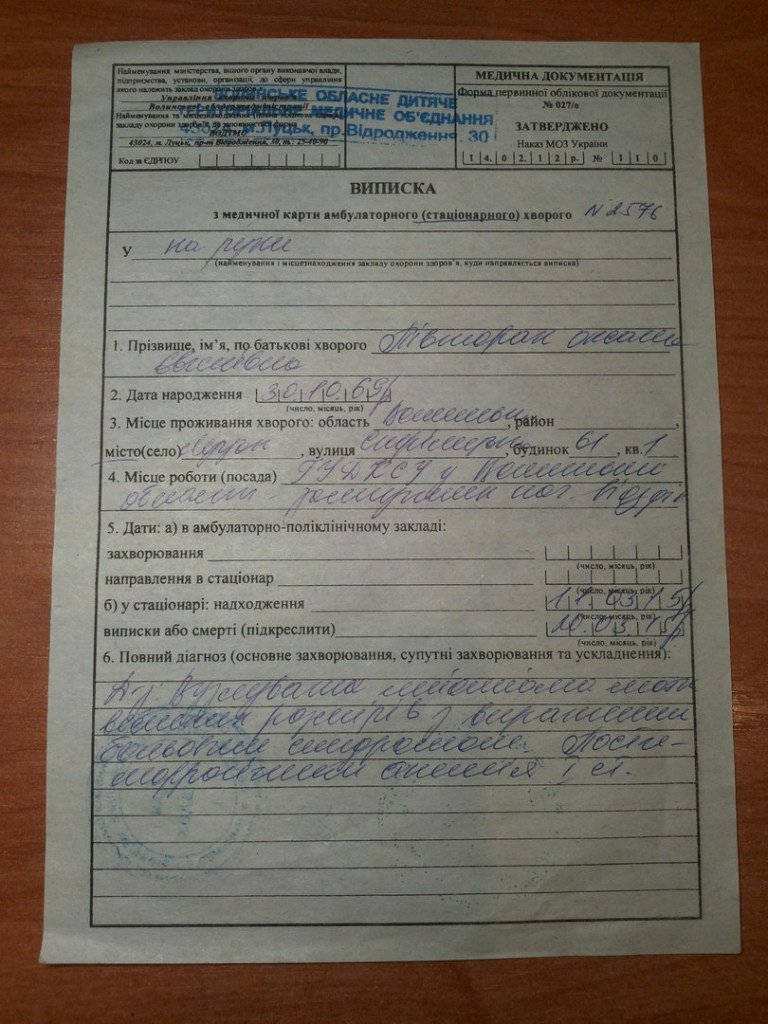 Найменування міністерства, іншого органу виконавчої влади,
підприємства, установи, організації, до сфери управління
якого належить заклад охорони здоров'я
Управління охорони здоров'я
Волинської облдержадміністрації
Найменування та місцезнаходження (повна поштова адреса)
закладу охорони здоров'я, де заповнюється форма
ВОДТМО
43024, м. Луцьк, пр-т Відродження, 30, т.: 25-40-90
Код за ЄДРПОУ
ВОЛИНСЬКЕ ОБЛАСНЕ ДИТЯЧЕ
ТЕРИТОРІАЛЬНЕ МЕДИЧНЕ ОБ'ЄДНАННЯ
43024, м.Луцьк, пр.Відродження, 30
МЕДИЧНА ДОКУМЕНТАЦІЯ
Форма первинної облікової документації
№ 027/о
ЗАТВЕРДЖЕНО
Наказ МОЗ України
14.02.12р. № 110
ВИПИСКА
з медичної карти амбулаторного (стаціонарного) хворого N 2576
У на руки
(найменування і місцезнаходження закладу охорони здоров'я, куди направляється виписка)
1. Прізвище, ім'я, по батькові хворого Півторак Оксани
2. Дата народження 30.10.69р
(число, місяць, рік)
3. Місце проживання хворого: область Волинська, район
місто(село) Луцьк, вулиця будинок 61, кв. 1
4. Місце роботи (посада) ГУДКСУ у Волинській
області -
5. Дати: а) в амбулаторно-поліклінічному закладі:
захворювання
(число, місяць, рік)
направлення в стаціонар
(число, місяць, рік)
б) у стаціонарі: надходження 11.03.15р
(число, місяць, рік)
виписки або смерті (підкреслити) 20.03.15р
(число, місяць, рік)
6. Повний діагноз (основне захворювання, супутні захворювання та ускладнення):
Дз: Вузлувата міома матки
великих розмірів з вираженим
больовим синдромом. Постге-
моррагічна анемія I ст.